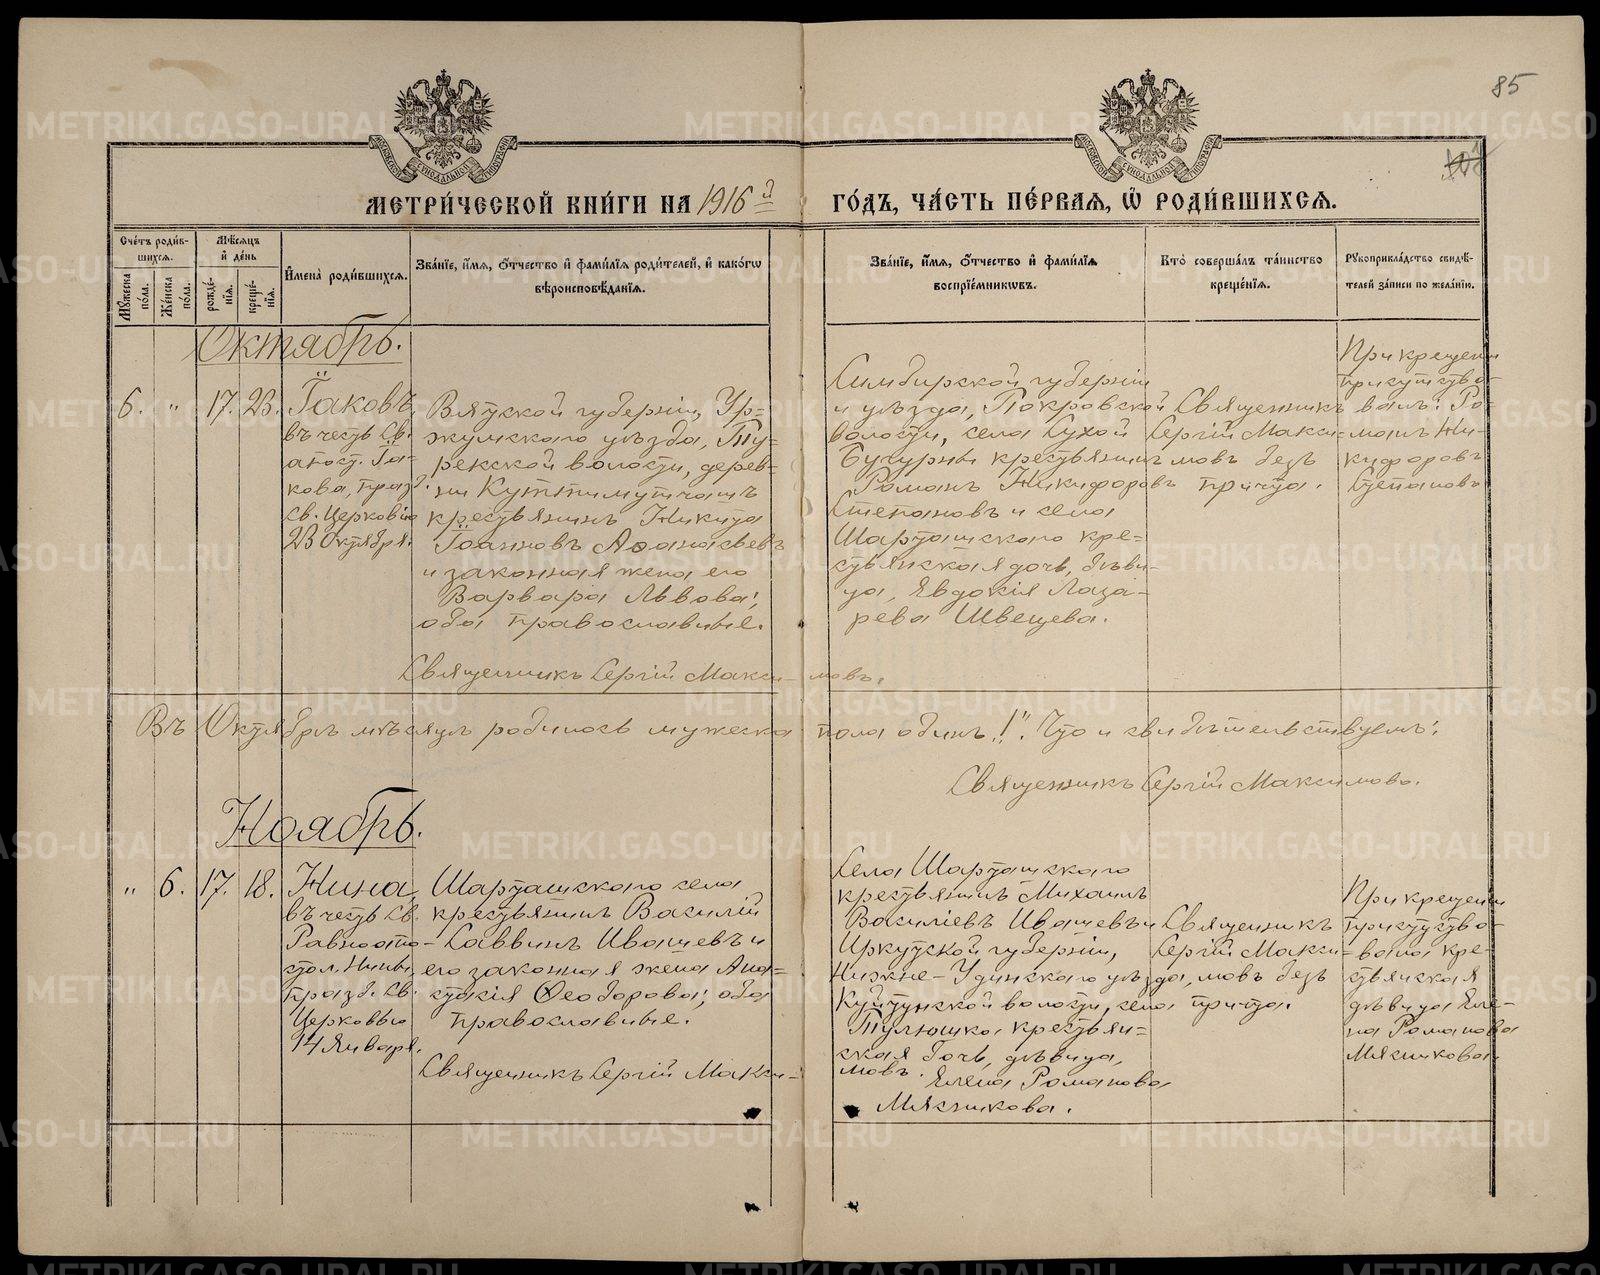 85
МОСКОВСКОЙ СѴНОДАЛЬНОЙ ТИПОГРАФІИ
МОСКОВСКОЙ СѴНОДАЛЬНОЙ ТИПОГРАФІИ
МЕТРИ́ЧЕСКОЙ КНИ́ГИ НА 1916 й
ГО́ДЪ, ЧА́СТЬ ПЕ́РВАЯ, Ѽ РОДИ́ВШИХСЯ.
Сче́тъ роди́в-
шихся.
Мужеска по́ла.
Же́нска по́ла.
Мѣ́сяцъ
и҆ де́нь
рожде́-
нїя.
креще́-
нїя.
И҆мена̀ роди́вшихся.
Зва́нїе, и҆́мя, ѻ҆́тчество и҆ фами́лїя роди́телей, и҆ како́гѡ
вѣроисповѣ́данїя.
Зва́нїе, и҆́мя, ѻ҆́тчество и҆ фами́лїя
воспрїе́мникѡвъ.
Кто̀ соверша́лъ та́инство
креще́нїя.
Рꙋкоприкла́дство свидѣ́-
телей за́писи по жела́нїю.
Октябрь.
6. " 17. 23. Іаковъ,
въ честь Св.
апост. Іа-
кова, празд.
Св. Церковію
23 Октября.
Вятской губерніи, Ур-
жумскаго уѣзда, Ту-
рекской волости, дерев-
ни
крестьянинъ Никита
Іоанновъ Аѳанасьевъ
и законная жена его
Варвара Львова;
оба православные.
Симбирской губерніи
и уѣзда, Покровской
волости, села Сухой
Бугурны крестьянинъ
Романъ Никифоровъ
Степановъ и села
Шарташскаго кре-
стьянская дочь, дѣви-
ца, Евдокія Лаза-
рева Швецева.
Священникъ
Сергій Макси-
мовъ безъ
причта.
При крещеніи
присутство-
валъ: Ро-
манъ Ни-
кифоровъ
Степановъ
Священникъ Сергій Макси-мовъ.
Въ Октябрѣ мѣсяцѣ родилось мужеска пола одинъ "1". Что и свидѣтельствуемъ:
Священникъ Сергій Максимовъ.
Ноябрь.
" 6. 17. 18. Нина,
въ честь Св.
Равноапо-
стол. Нины,
празд. Св.
Церковью
14 Января.
Шарташскаго села
крестьянинъ Василій
Саввинъ Ивачевъ и
его законная жена Ана-
стасія Ѳеодорова; оба
православные.
Села Шарташскаго
крестьянинъ Михаилъ
Василіевъ Ивачевъ и
Иркутской губерніи,
Нижне-Удинскаго уѣзда,
Куйтунской волости, села
Тулюшка крестьян-
ская дочь, дѣвица,
Елена Романова
Мясникова.
Священникъ
Сергій Макси-
мовъ безъ
причта.
При крещеніи
присутство-
вала кре-
стьянская
дѣвица Еле-
на Романова
Мясникова.
Священникъ Сергій Макси-
мовъ.
METRIKI.GASO-URAL.RU